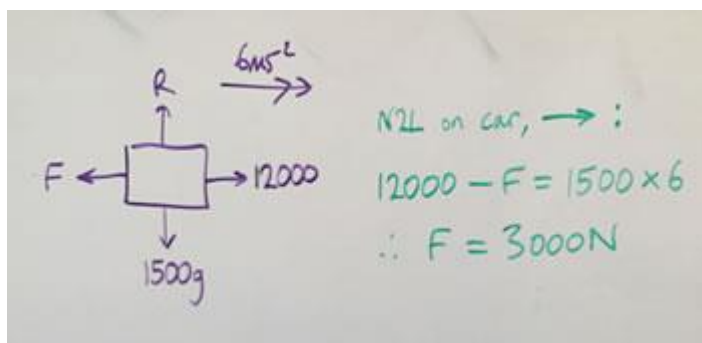 6ms⁻²
R
F
12000
1500g
N2L on car, → :
12000 − F = 1500 × 6
∴ F = 3000N